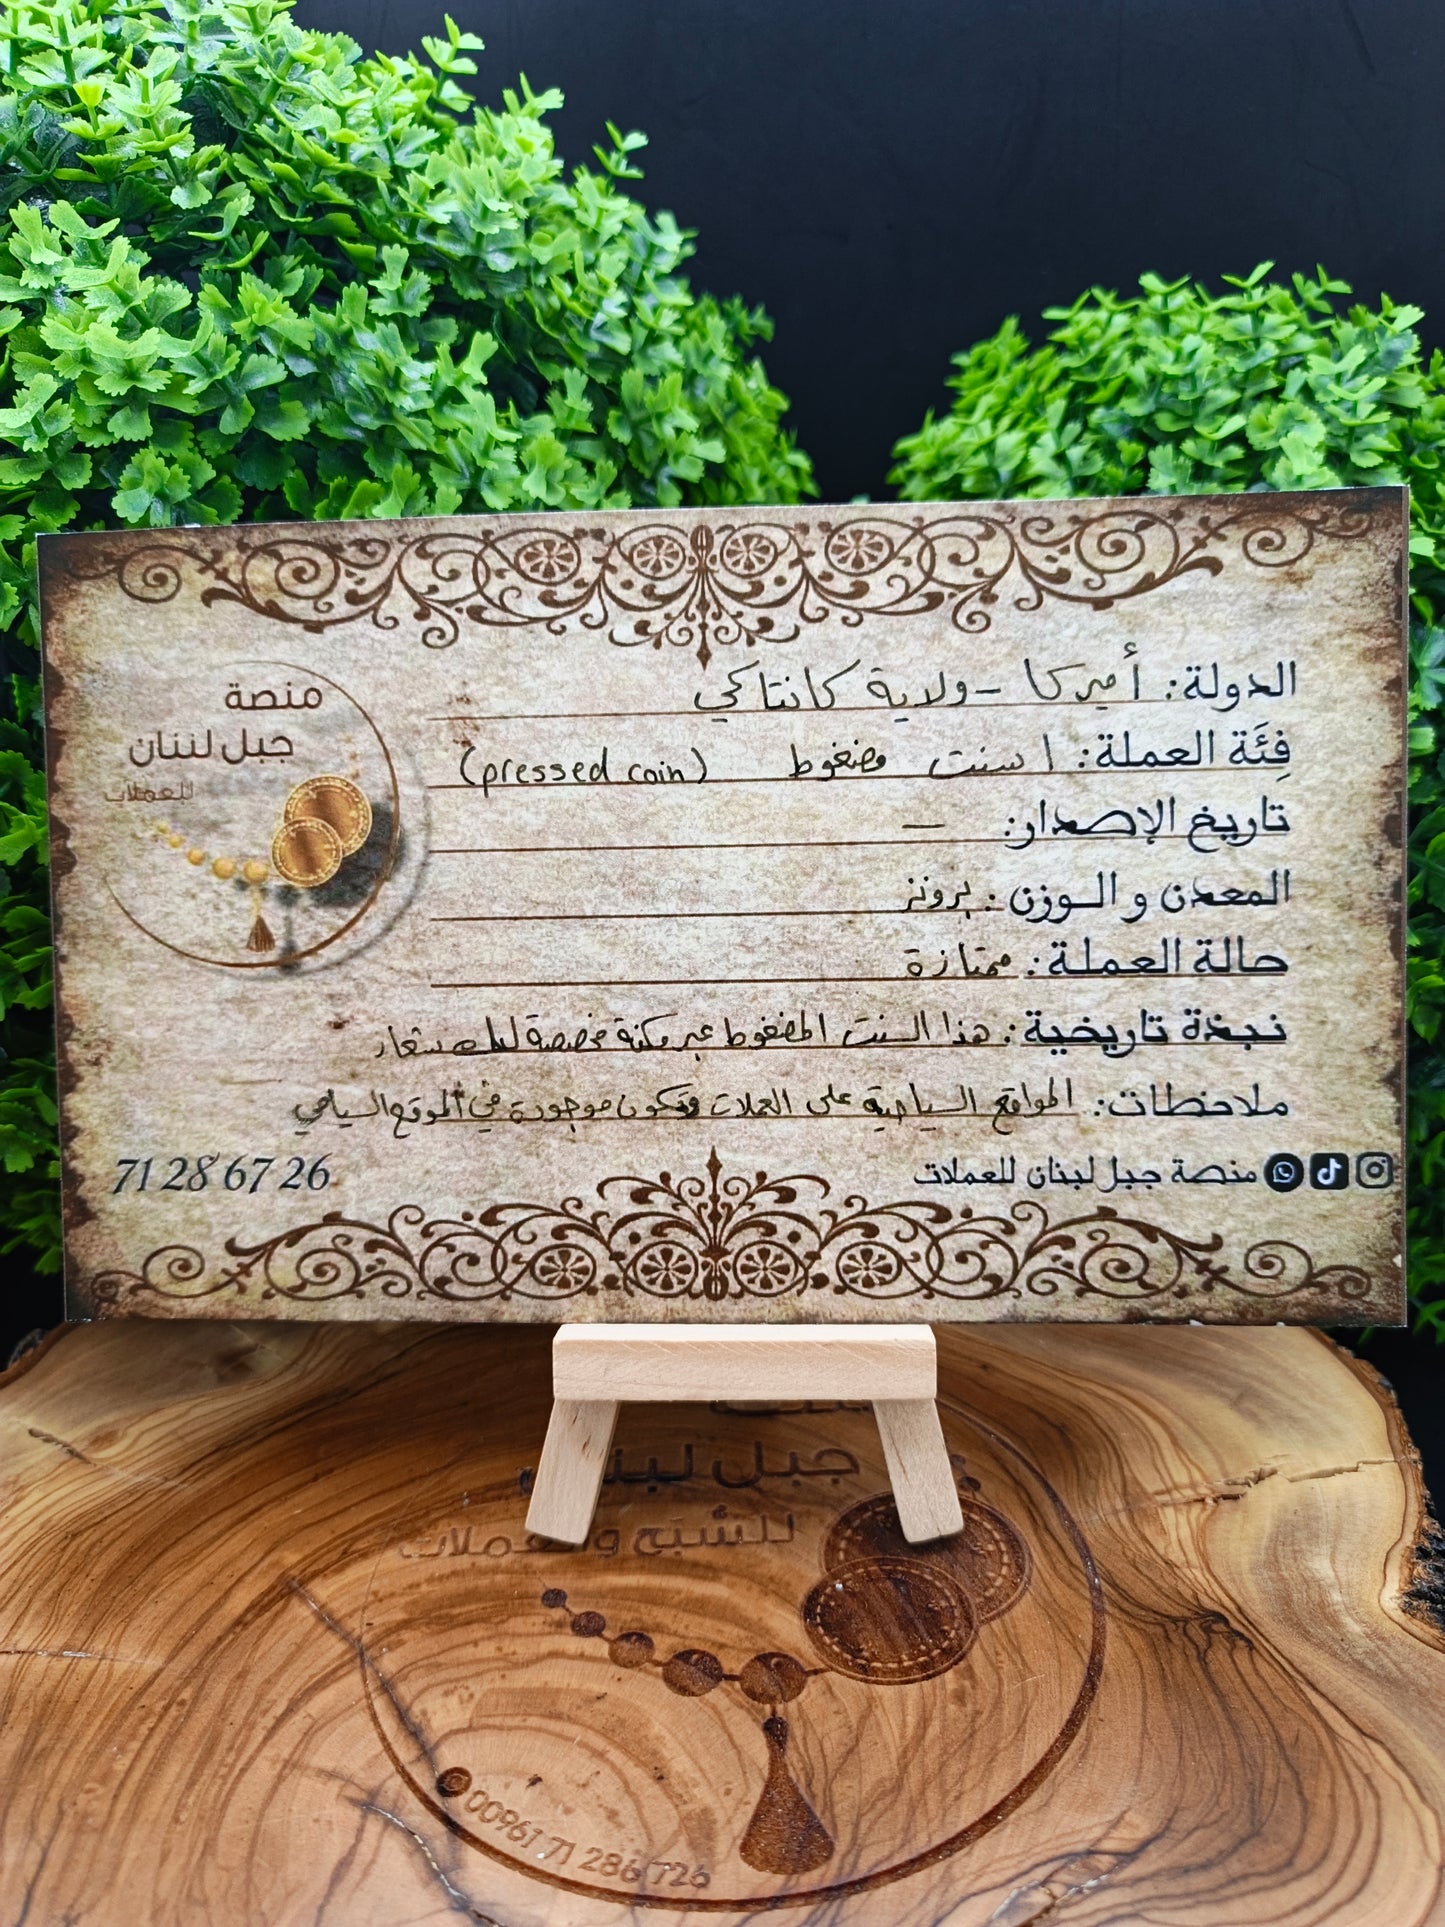 منصة
جبل لبنان
للعملات
الدولة: أميركا - ولاية كانتاكي
فِئَة العملة: ١ سنت مضغوط (pressed coin)
تاريخ الإصدار: —
المعدن و الـوزن: برونز
حالة العملـة: ممتازة
نبـذة تاريخيـة: هذا السنت المضغوط عبر مكنة مخصصة لبك شعار
ملاحظات: المواقع السياحية على العملات وتكون موجودة في الموقع السياحي
71 28 67 26
منصة جبل لبنان للعملات
جبل لبنـ
للسُّبَح والعملات
00961 71 286 726